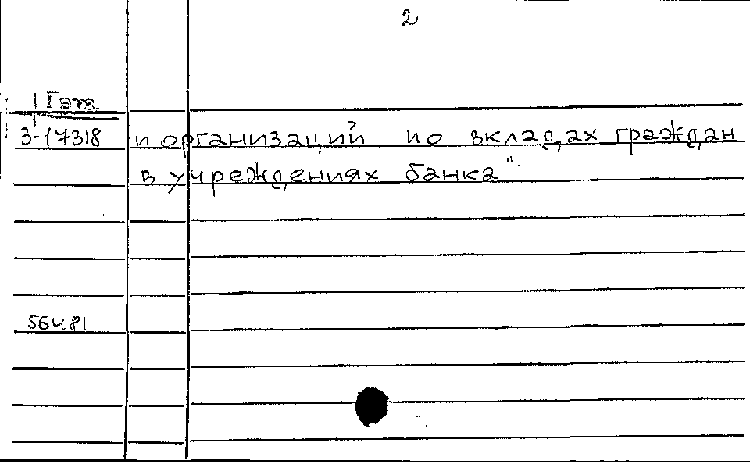 2
1 Гэт
3-17318 и организаций по вкладах граждан
в учреждениях банка"